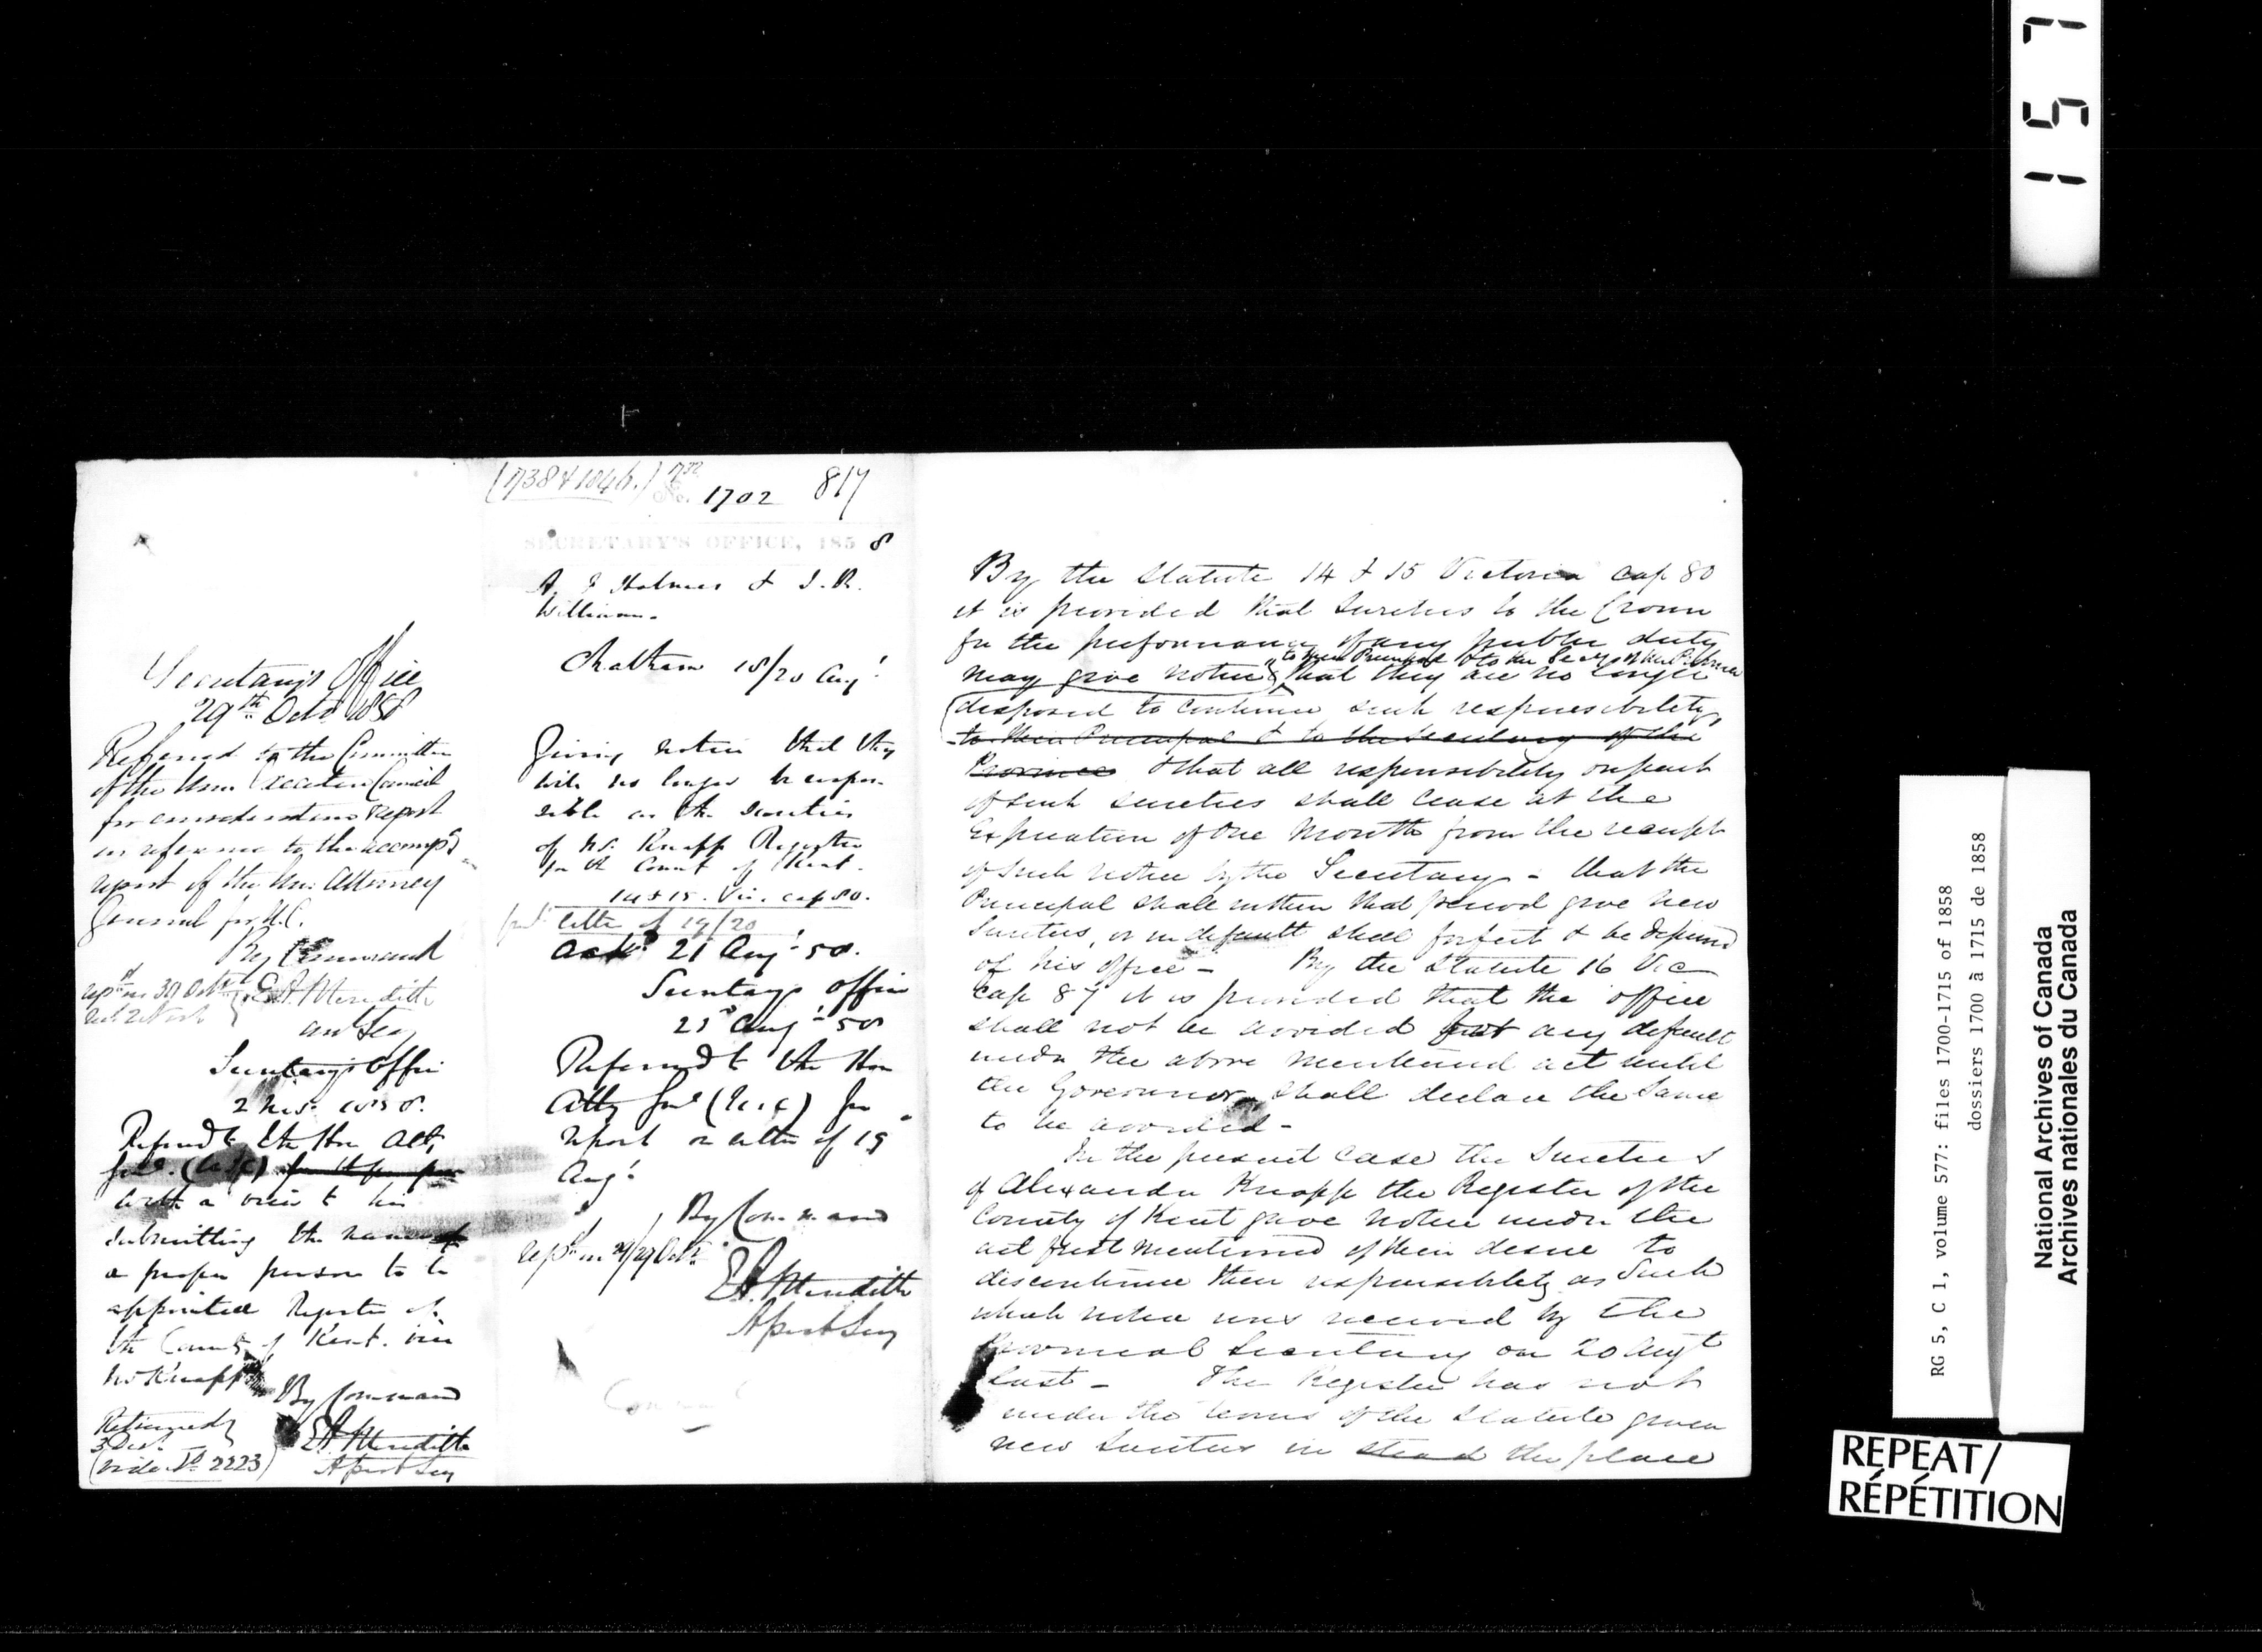 Secretary's Office
29th Octr 1858
Referred to the Committee
of the Hon. Executive Council
for consideration & report
in reference to the accompg
report of the Hon. Attorney
General for U.C.
By Command
E A Meredith
Asst Secy
Secretary's Office
2 Nov. 1858.
Referred to the Hon Atty
Genl. (U.C.) for the purpose
with a view to his
submitting the name of
a proper person to be
appointed Register of
the County of Kent. vice
Mr Knapp
By Command
E A Meredith
Asst Secy
Returned
3 Dec.
(Vide No 2223)
(738 & 1046.)
No. 1702 817
SECRETARY'S OFFICE, 1858
A J Holmes & J. R.
Williams.
Chatham 18/20 Augt
Giving notice that they
will no longer be respon
sible as the sureties
of Mr. Knapp Register
for the Count of Kent.
14 & 15. Vic. cap 80.
letter of 19/20
Ackd 21 Augt 58.
Secretarys Office
21st Augt 58
Referred to the Hon
Atty Genl (U.C) for
report on letter of 19
Augt
By Command
E A Meredith
Asst Secy
By the Statute 14 & 15 Victoria cap 80
it is provided that Sureties to the Crown
for the performance of any public duty
to their Principal & to the Secy of the Province
may give notice & that they are no longer
disposed to continue such responsibility,
to their Principal & to the Secretary of the
Province & that all responsibility on part
of such sureties shall cease at the
Expiration of One Month from the receipt
of such notice by the Secretary - that the
Principal shall within that period give new
Sureties, or in default shall forfeit & be deprived
of his office - By the Statute 16 Vic
cap 87 it is provided that the office
shall not be avoided for any default
under the above mentioned act until
the Governor shall declare the same
to be avoided -
In the present case the Sureties
of Alexander Knapp the Register of the
County of Kent gave notice under the
act first mentioned of their desire to
discontinue their responsibility as Such
which notice was received by the
Provincial Secretary on 20 Augt
last - The Register has not
under the terms of the Statute given
new Sureties in stead the place
157
RG 5, C 1, volume 577: files 1700-1715 of 1858
dossiers 1700 à 1715 de 1858
National Archives of Canada
Archives nationales du Canada
REPEAT/
RÉPÉTITION